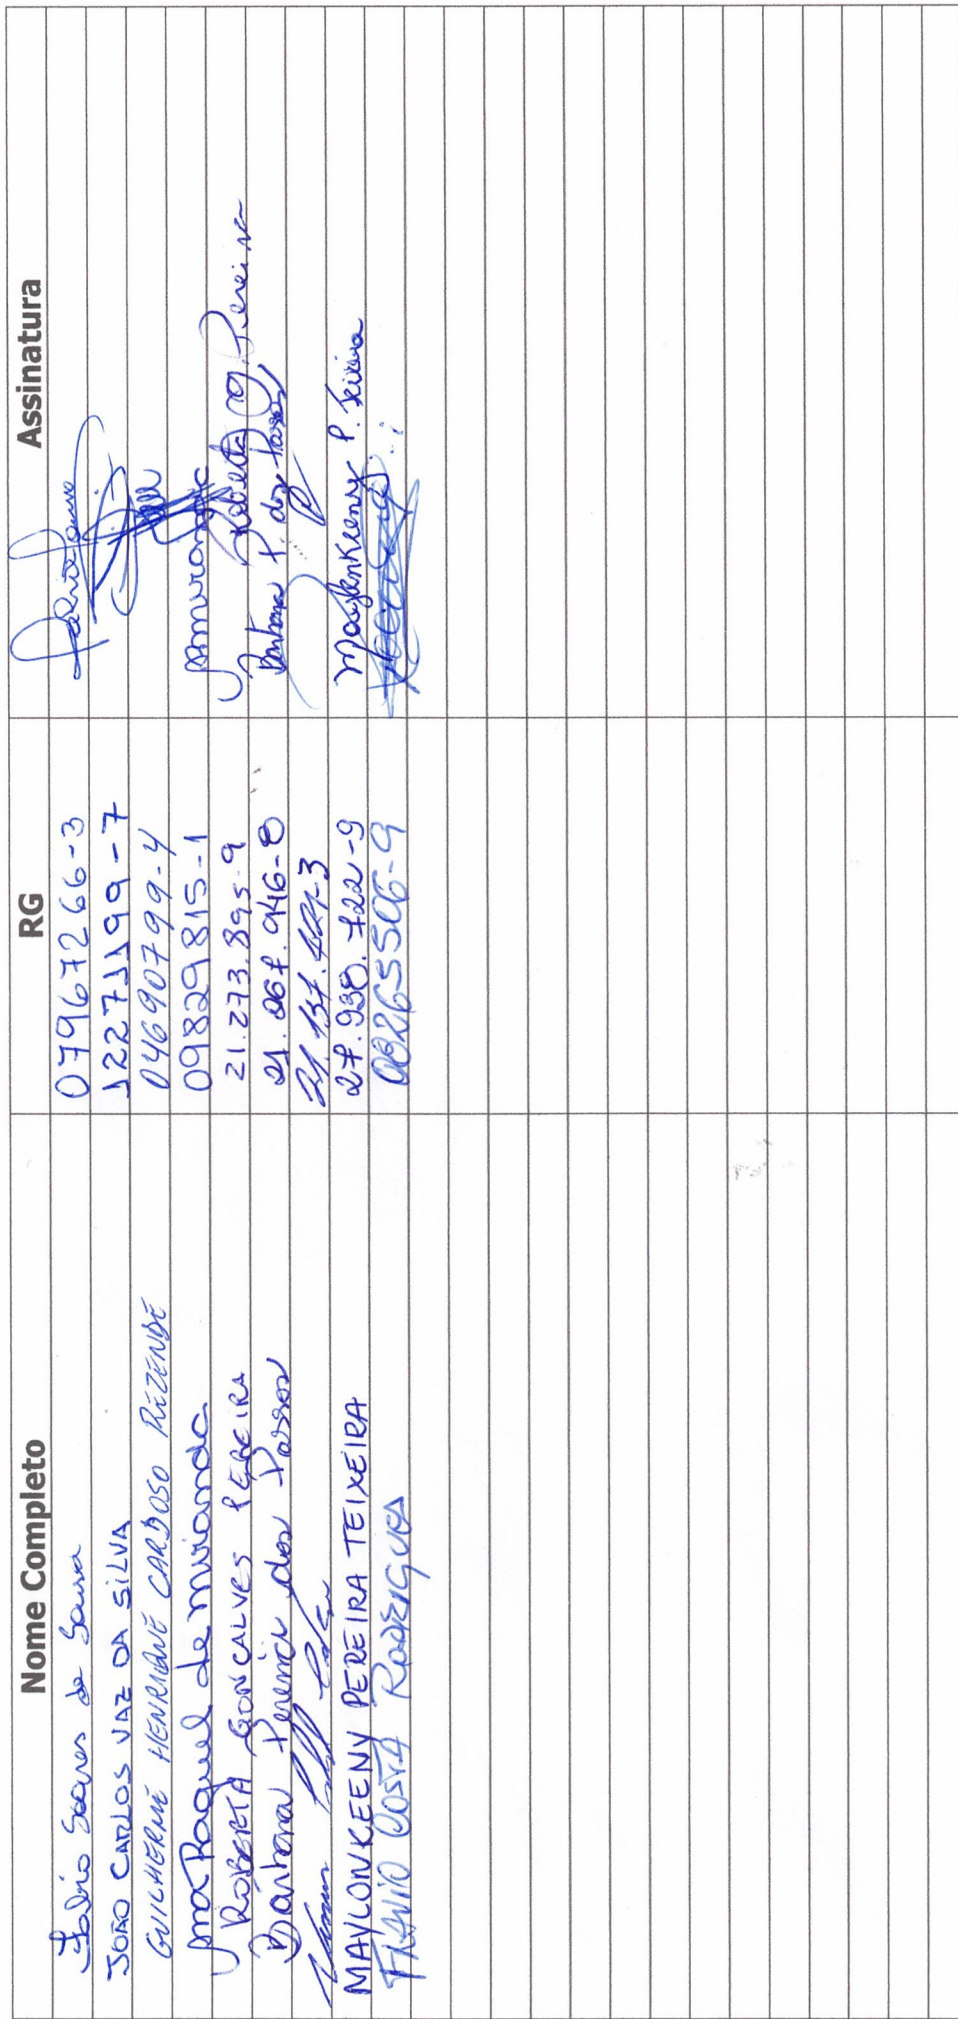 Nome Completo RG Assinatura
Fabio Soares de Sousa 07967266-3
JOÃO CARLOS VAZ DA SILVA 12271199-7
GUILHERME HENRIQUE CARDOSO REZENDE 04690799-4
Ana Raquel de Miranda 09829815-1
ROBERTA GONCALVES PEREIRA 21.273.895-9 Roberta G. Pereira
Bárbara Pereira dos Passos 21.067.946-0 Barbara P. dos Passos
MAYLONKEENY PEREIRA TEIXEIRA 27.938.722-9 Maylonkeeny P. Teixeira
FLAVIO COSTA RODRIGUES